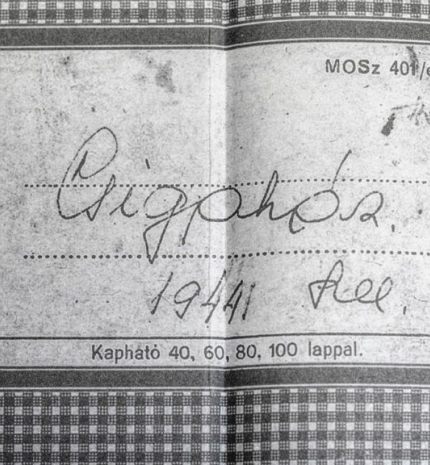 MOSz 401/
Csigaház.
1944
Kapható 40, 60, 80, 100 lappal.